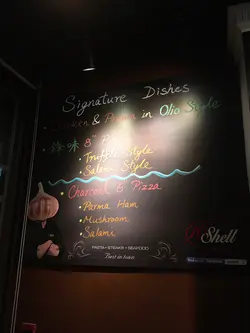 Signature Dishes
& Prawn in Olio Style
8" P
• Truffle Style
• Salami Style
• Charcoal 6" Pizza
• Parma Ham
• Mushroom
• Salami
Shell
PASTA • STEAKS • SEAFOOD
Best in town